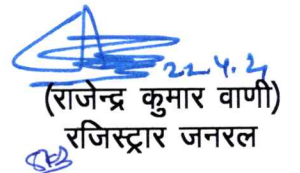 22.4.21
(राजेन्द्र कुमार वाणी)
रजिस्ट्रार जनरल